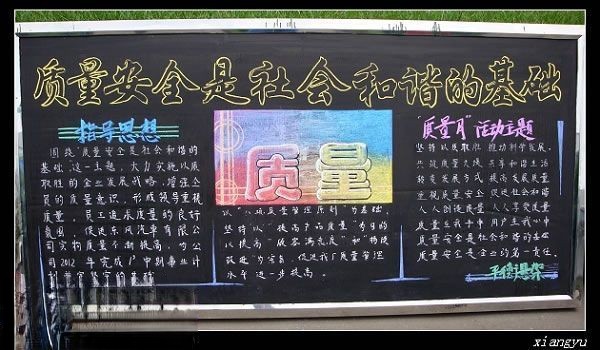 质量安全是社会和谐的基础
指导思想
围绕"质量安全是社会和谐的
基础"这一主题,大力实施以质
取胜的企业发展战略,增强全
员的质量意识,形成领导重视
质量、员工追求质量的良好
氛围,促进东风汽车有限公
司实物质量不断提高,为公
司2012年完成
质量
质量管理原则"为基础,
坚持以"提高产品质量"为目的
以"提高顾客满意度"和"持续
改进"为宗旨,促进我厂质量管理
水平进一步提高。
"质量月"活动主题
坚持以质取胜 推动科学发展
共筑质量 共享和谐生活
转变发展方式 提高发展质量
重视质量安全 促进社会和谐
人人创造质量 人人享受质量
质量在我手中 用户在我心中
质量安全是社会和谐的基础
质量安全是企业的第一责任。
xiangyu